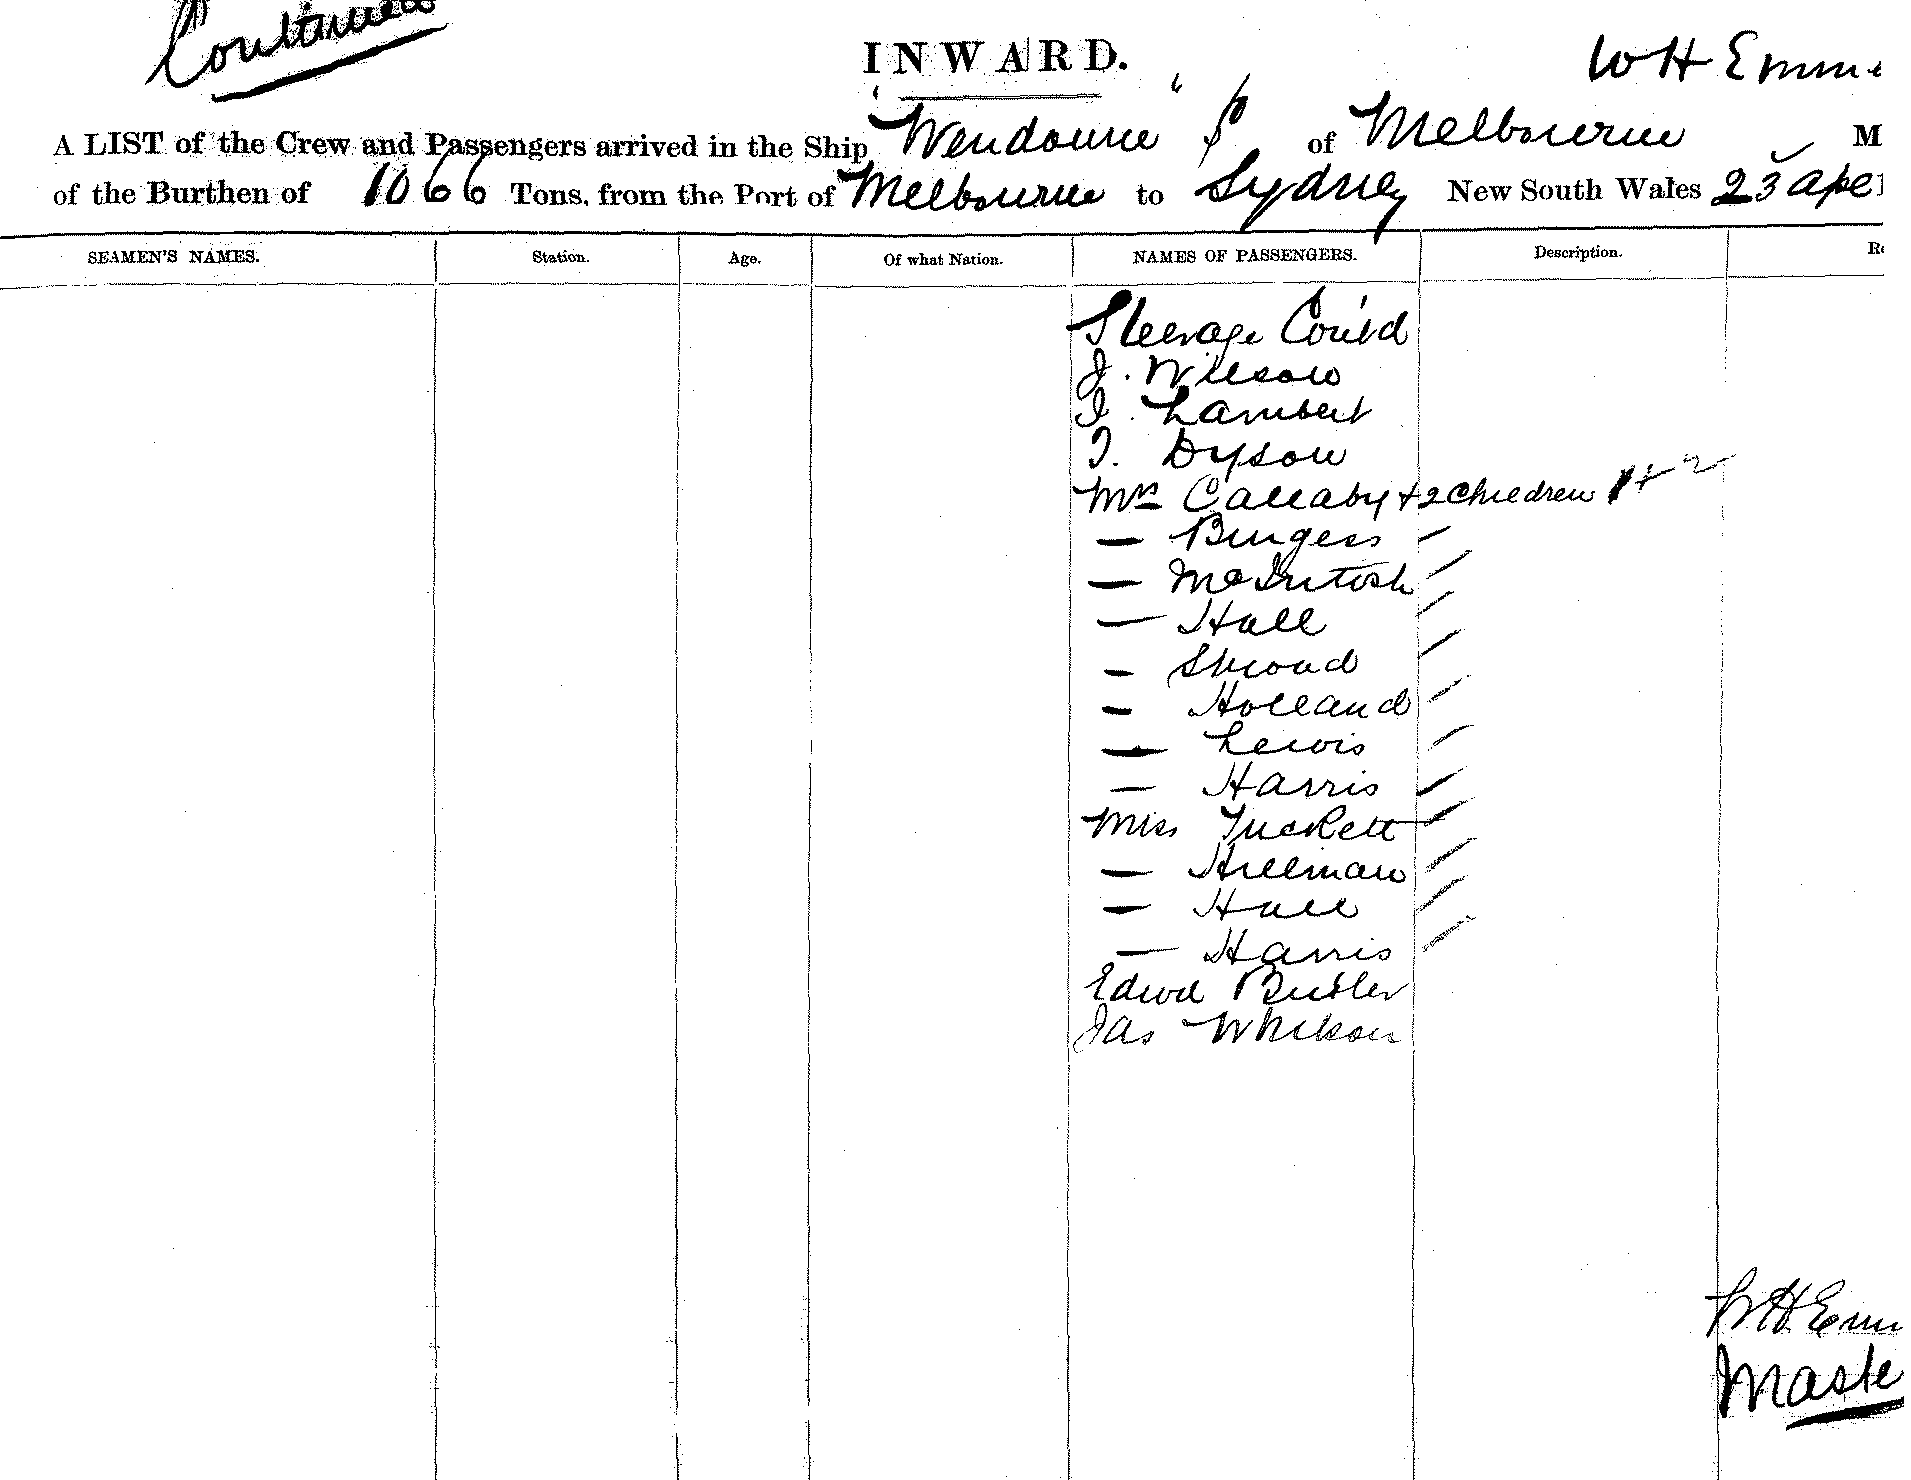 Continued
INWARD.
W H Emme
A LIST of the Crew and Passengers arrived in the Ship "Wendouree" S of Melbourne M
of the Burthen of 1066 Tons, from the Port of Melbourne to Sydney New South Wales 23 Apl 1
SEAMEN'S NAMES. Station. Age. Of what Nation. NAMES OF PASSENGERS. Description. Re
Steerage Cont'd
J. Wilson
J. Lambert
T. Dyson
Mrs Callaby + 2 Children 1 + 2
— Burgess
— McIntosh
— Hall
— Shroud
— Holland
— Lewis
— Harris
Miss Tuckett
— Hillman
— Hall
— Harris
Edwd Butler
Jas
W H Emm
Maste